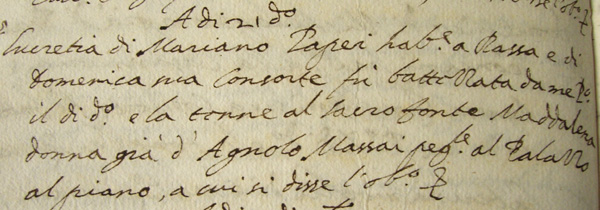 A di 21 dº
Lucretia di Mariano Paperi habᵉ a Massa e di
Domenica sua Consorte fù battezzata da me Pº
il di dº e la tenne al sacro fonte Maddalena
donna già d' Agnolo Massai pegˡᵉ al Palazzo
al piano, a cui si disse l'obº